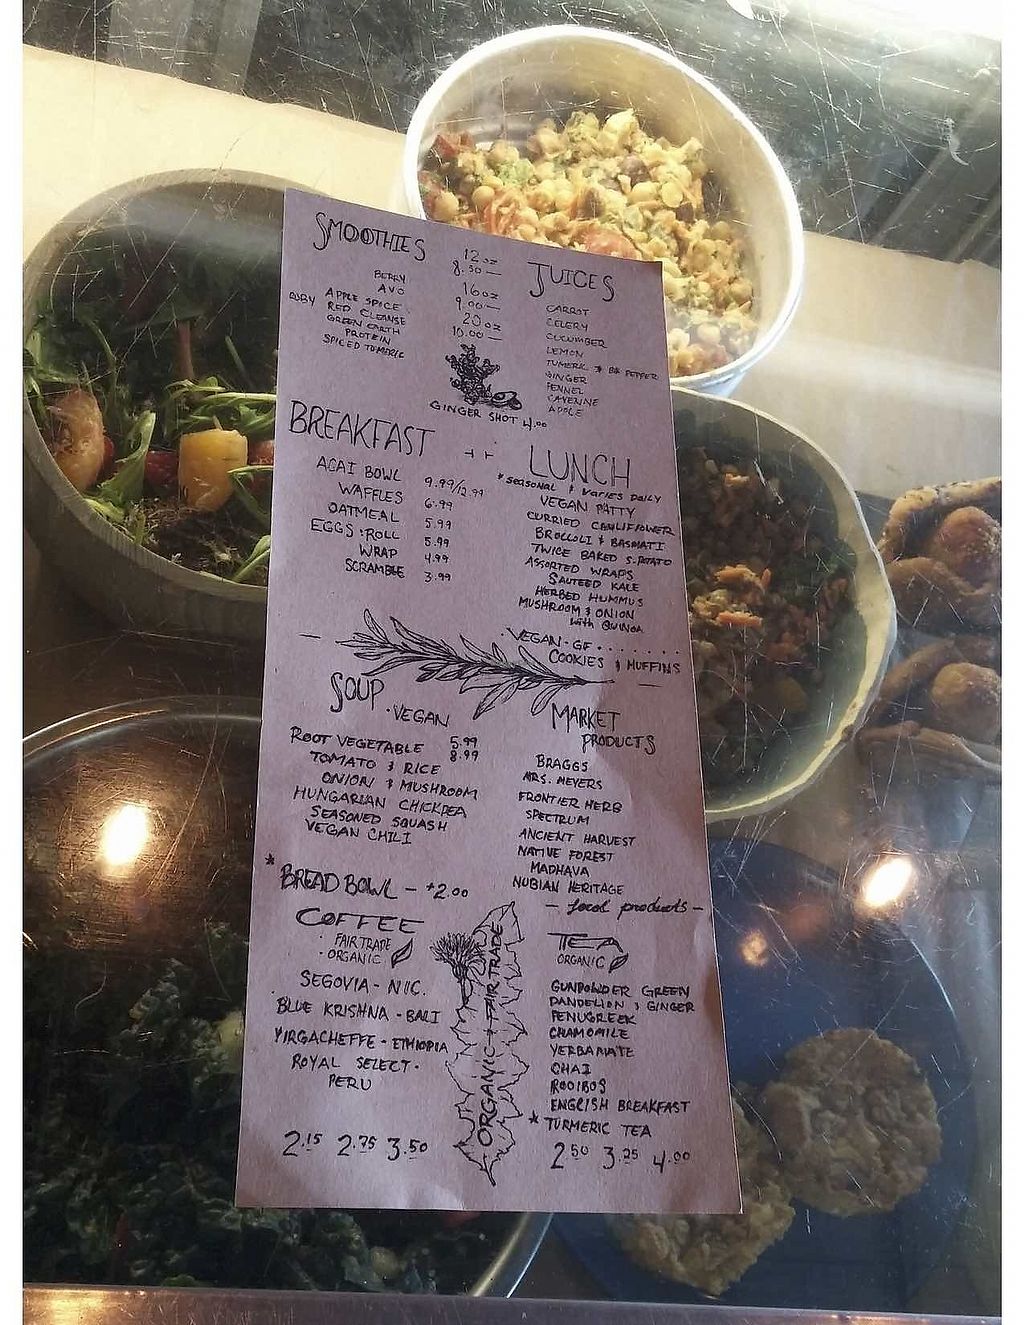 SMOOTHIES
12oz
8.50 —
16oz
9.00 —
20oz
10.00 —
BERRY
AVO
APPLE SPICE
RUBY RED CLEANSE
GREEN EARTH
PROTEIN
SPICED TUMERIC
GINGER SHOT 4.00
JUICES
CARROT
CELERY
CUCUMBER
LEMON
TUMERIC * BK PEPPER
GINGER
FENNEL
CAYENNE
APPLE
BREAKFAST
ACAI BOWL 9.99/12.99
WAFFLES 6.99
OATMEAL 5.99
EGGS : ROLL 5.99
WRAP 4.99
SCRAMBLE 3.99
LUNCH
* SEASONAL & VARIES DAILY
VEGAN PATTY
CURRIED CAULIFLOWER
BROCCOLI & BASMATI
TWICE BAKED S. POTATO
ASSORTED WRAPS
SAUTEED KALE
HERBED HUMMUS
MUSHROOM & ONION
with QUINOA
. VEGAN - GF . . . . . . . .
COOKIES & MUFFINS
SOUP . VEGAN
5.99
8.99
ROOT VEGETABLE
TOMATO & RICE
ONION & MUSHROOM
HUNGARIAN CHICKPEA
SEASONED SQUASH
VEGAN CHILI
* BREAD BOWL — +2.00
MARKET
PRODUCTS
BRAGGS
MRS. MEYERS
FRONTIER HERB
SPECTRUM
ANCIENT HARVEST
NATIVE FOREST
MADHAVA
NUBIAN HERITAGE
— local products —
COFFEE
. FAIR TRADE
. ORGANIC
SEGOVIA - NIC.
BLUE KRISHNA - BALI
YIRGACHEFFE - ETHIOPIA
ROYAL SELECT .
PERU
2.15 2.75 3.50
ORGANIC + FAIR TRADE
TEA
ORGANIC
GUNPOWDER GREEN
DANDELION & GINGER
FENUGREEK
CHAMOMILE
YERBAMATE
CHAI
ROOIBOS
ENGLISH BREAKFAST
* TURMERIC TEA
2.50 3.25 4.00